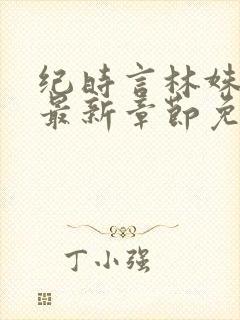 纪时言林妹
最新章节免
丁小强